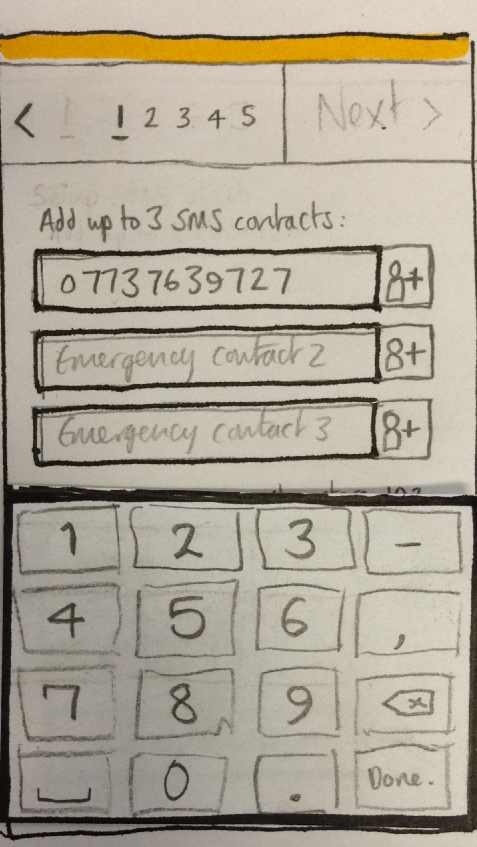 < 1 2 3 4 5 Next >
Add up to 3 SMS contacts:
07737639727 8+
Emergency contact 2 8+
Emergency contact 3 8+
1 2 3 -
4 5 6 ,
7 8 9 x
0 .
Done.